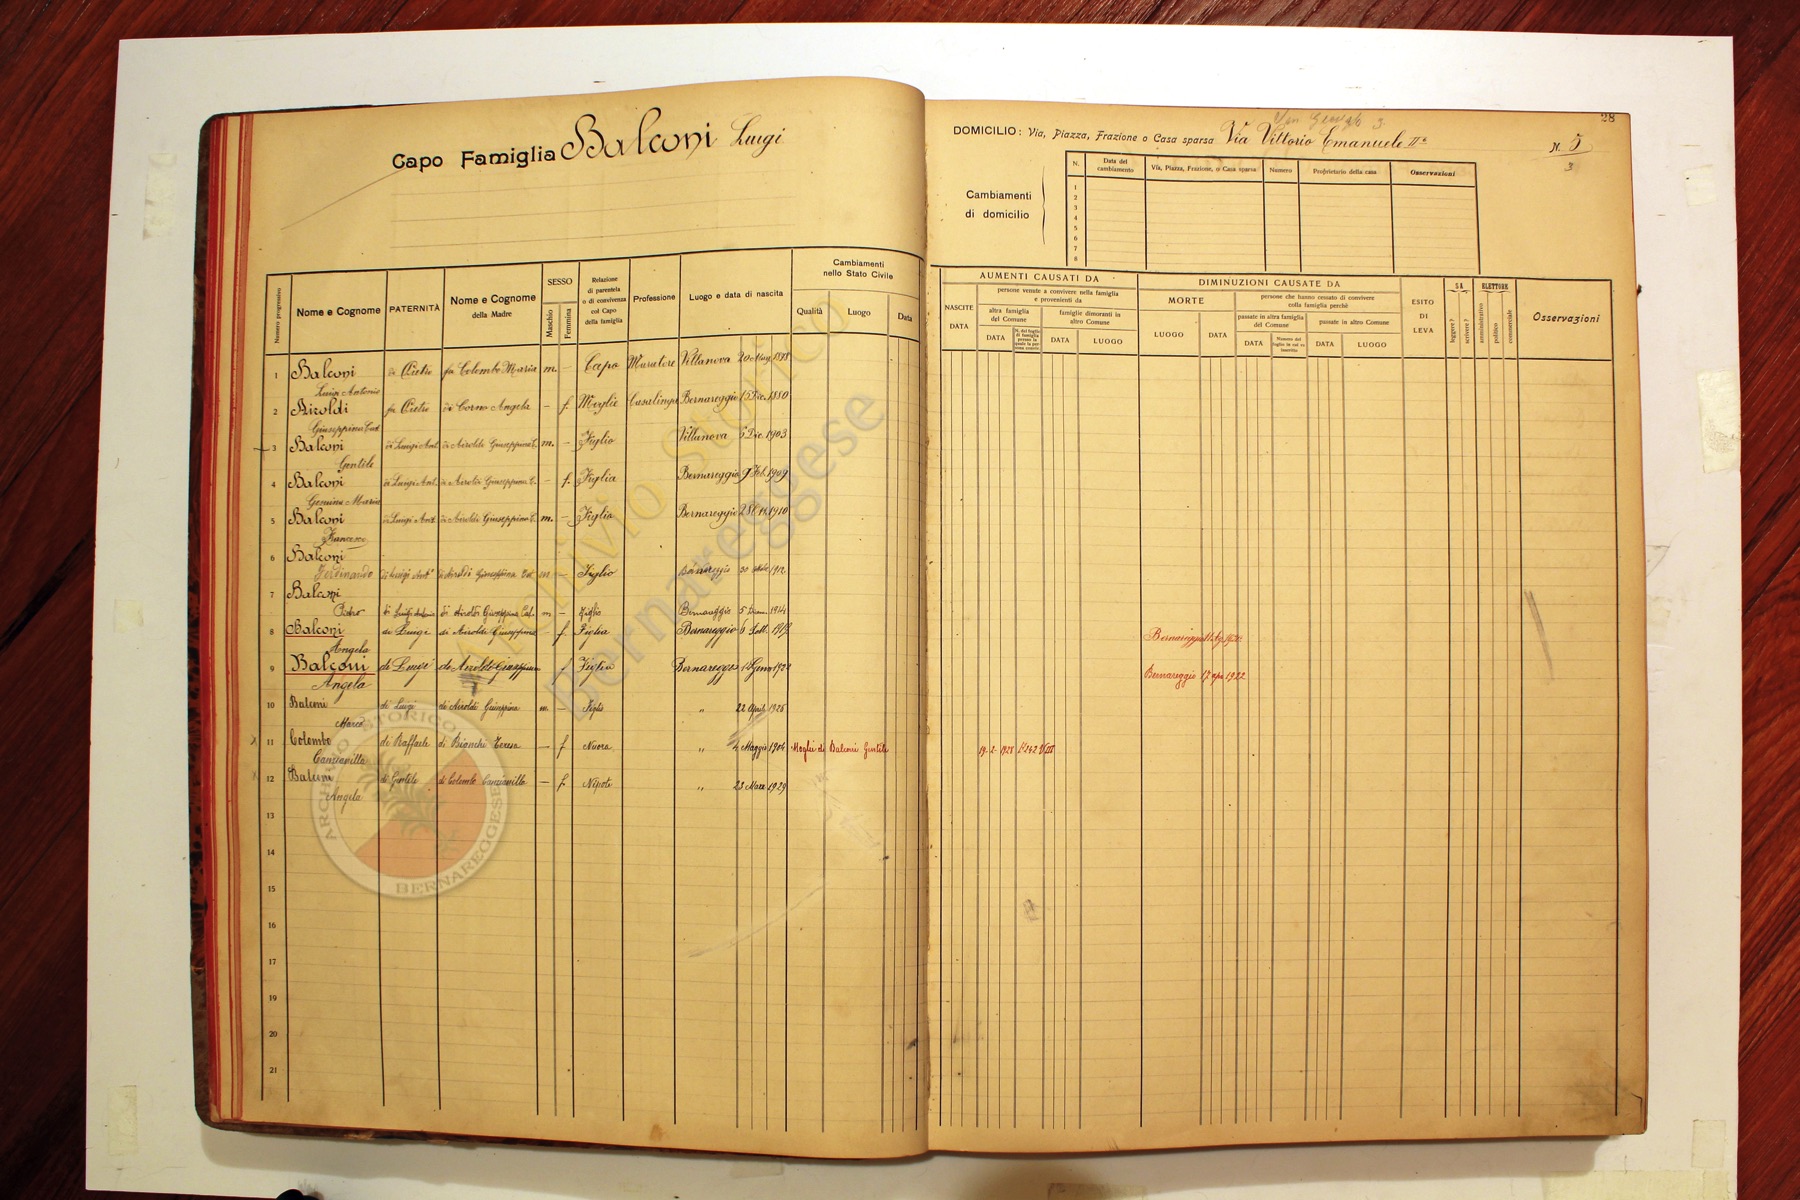 Capo Famiglia Balconi Luigi
28
DOMICILIO: Via, Piazza, Frazione o Casa sparsa Via Vittorio Emanuele IIº
N. 5
3
Cambiamenti
di domicilio
N. Data del cambiamento Via, Piazza, Frazione, o Casa sparsa Numero Proprietario della casa Osservazioni
1
2
3
4
5
6
7
8
Numero progressivo
Nome e Cognome
PATERNITÀ
Nome e Cognome
della Madre
SESSO
Maschio
Femmina
Relazione
di parentela
o di convivenza
col Capo
della famiglia
Professione
Luogo e data di nascita
Cambiamenti
nello Stato Civile
Qualità
Luogo
Data
AUMENTI CAUSATI DA
NASCITE
DATA
persone venute a convivere nella famiglia
e provenienti da
altra famiglia
del Comune
DATA
famiglie dimoranti in
altro Comune
DATA
LUOGO
DIMINUZIONI CAUSATE DA
MORTE
LUOGO
DATA
persone che hanno cessato di convivere
colla famiglia perchè
passate in altra famiglia
del Comune
DATA
passate in altro Comune
DATA
LUOGO
ESITO
DI
LEVA
SA
leggere?
scrivere?
ELETTORE
amministrativo
politico
commerciale
Osservazioni
1 Balconi di Pietro fu Colombo Maria m. – Capo Muratore Villanova 20
Luigi Antonio
2 Airoldi fu Pietro di Corno Angela – f. Moglie Casalinga Bernareggio 15 Dic. 1880
Giuseppina
3 Balconi di Luigi Ant. di Airoldi Giuseppina C. m. – Figlio Villanova 6 Dic. 1903
Gentile
4 Balconi di Luigi Ant. di Airoldi Giuseppina C. – f. Figlia Bernareggio 9 Feb. 1909
Gemma Maria
5 Balconi di Luigi Ant di Airoldi Giuseppina C. m. – Figlio Bernareggio 28 1910
Francesco
6 Balconi
Ferdinando di Luigi Antº di Airoldi Giuseppina m – Figlio Bernareggio 30 1912
7 Balconi
Pietro di Luigi Antonio di Airoldi Giuseppina Cat. m – Figlio Bernareggio 5 1914
8 Balconi di Luigi di Airoldi Giuseppina – f Figlia Bernareggio 6 Sett. Bernareggio
Angela
9 Balconi di Luigi di Airoldi Giuseppina f Figlia Bernareggio 1922 Bernareggio 17 apr 1922
Angela
10 Balconi di Luigi di Airoldi Giuseppina m. – Figlio „ 22 April 1925
Marco
11 Colombo di Raffaele di Bianchi Teresa – f Nuora „ 4 Maggio 1904 Moglie di Balconi Gentile 19-2-1928
12 Balconi di Gentile di Colombo – f. Nipote „ 23 1929
Angela
13
14
15
16
17
18
19
20
21
Archivio Storico
Bernareggese
ARCHIVIO STORICO
BERNAREGGESE